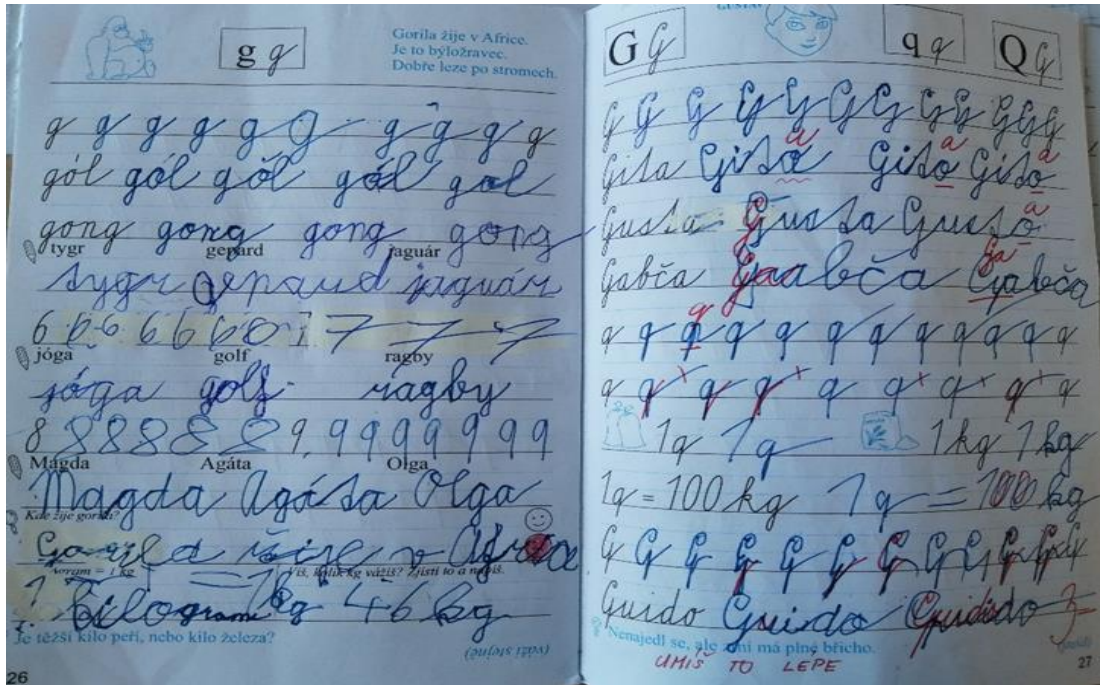 g g
Gorila žije v Africe.
Je to býložravec.
Dobře leze po stromech.
g g g g g g g g g g
gól gól gól gól gól
gong gong gong gong
tygr gepard jaguár
tygr gepard jaguár
6 6 6 6 6 6 6 7 7 7 7
jóga golf ragby
jóga golf ragby
8 8 8 8 8 8 8 9 9 9 9 9 9 9 9
Magda Agáta Olga
Magda Agáta Olga
Kde žije gorila?
Gorila žije v Africe
kg Víš, kolik kg vážíš? Zjisti to a napiš.
1 kilogram 1kg 46 kg
Je těžší kilo peří, nebo kilo železa?
(váží stejně)
26
G G q q Q Q
G G G G G G G G G G G G
Gita Gito a Gito a Gito a
Gusta Gusta Gusto a
Gabča Gaabča Gabča Ga
q q q q q q q q q q q q
q q q q q q q q q
1q 1q 1kg 1kg
1q = 100 kg 1q = 100 kg
G G G G G G G G G G G G
Guido Guido Guido
Nenajedl se, ale
má plné břicho.
UMÍŠ TO LÉPE
27